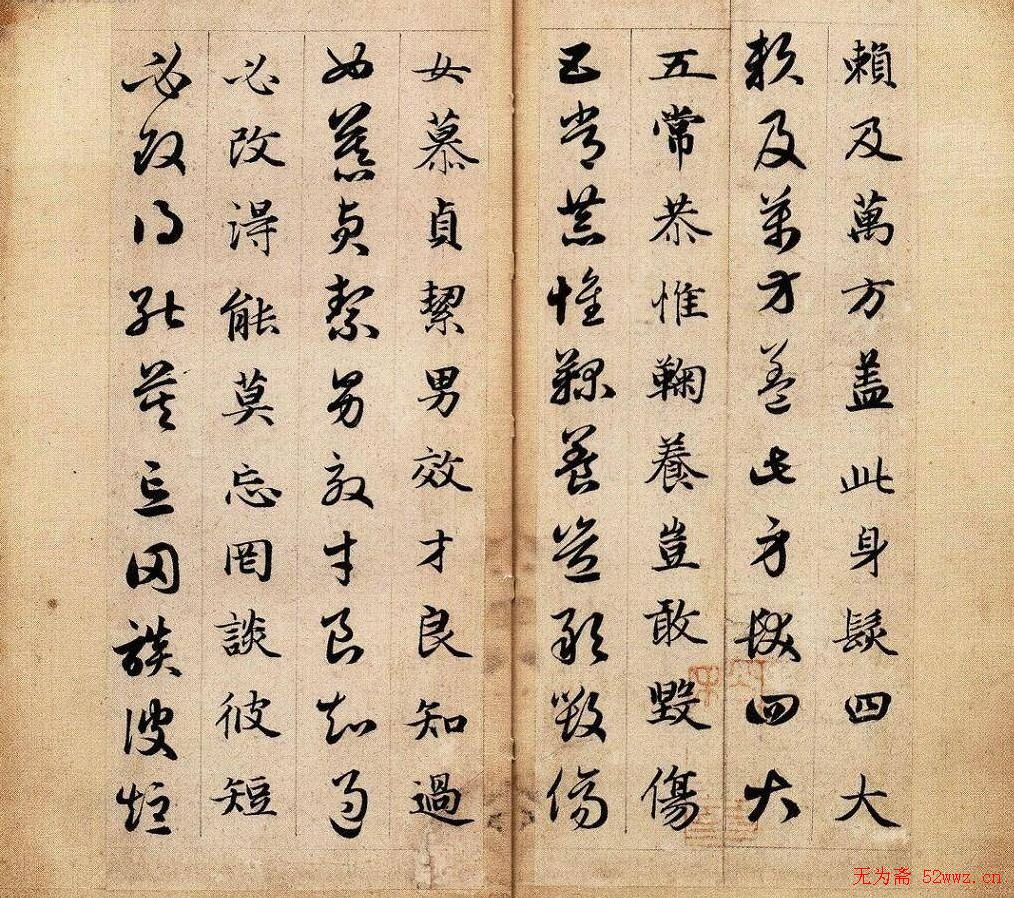 賴及萬方盖此身髮四大
賴及萬方盖此身髮四大
五常恭惟鞠養豈敢毀傷
五常恭惟鞠養豈敢毀傷
女慕貞絜男效才良知過
女慕貞絜男效才良知過
必改得能莫忘罔談彼短
必改得能莫忘罔談彼短
无为斋 52wwz.cn